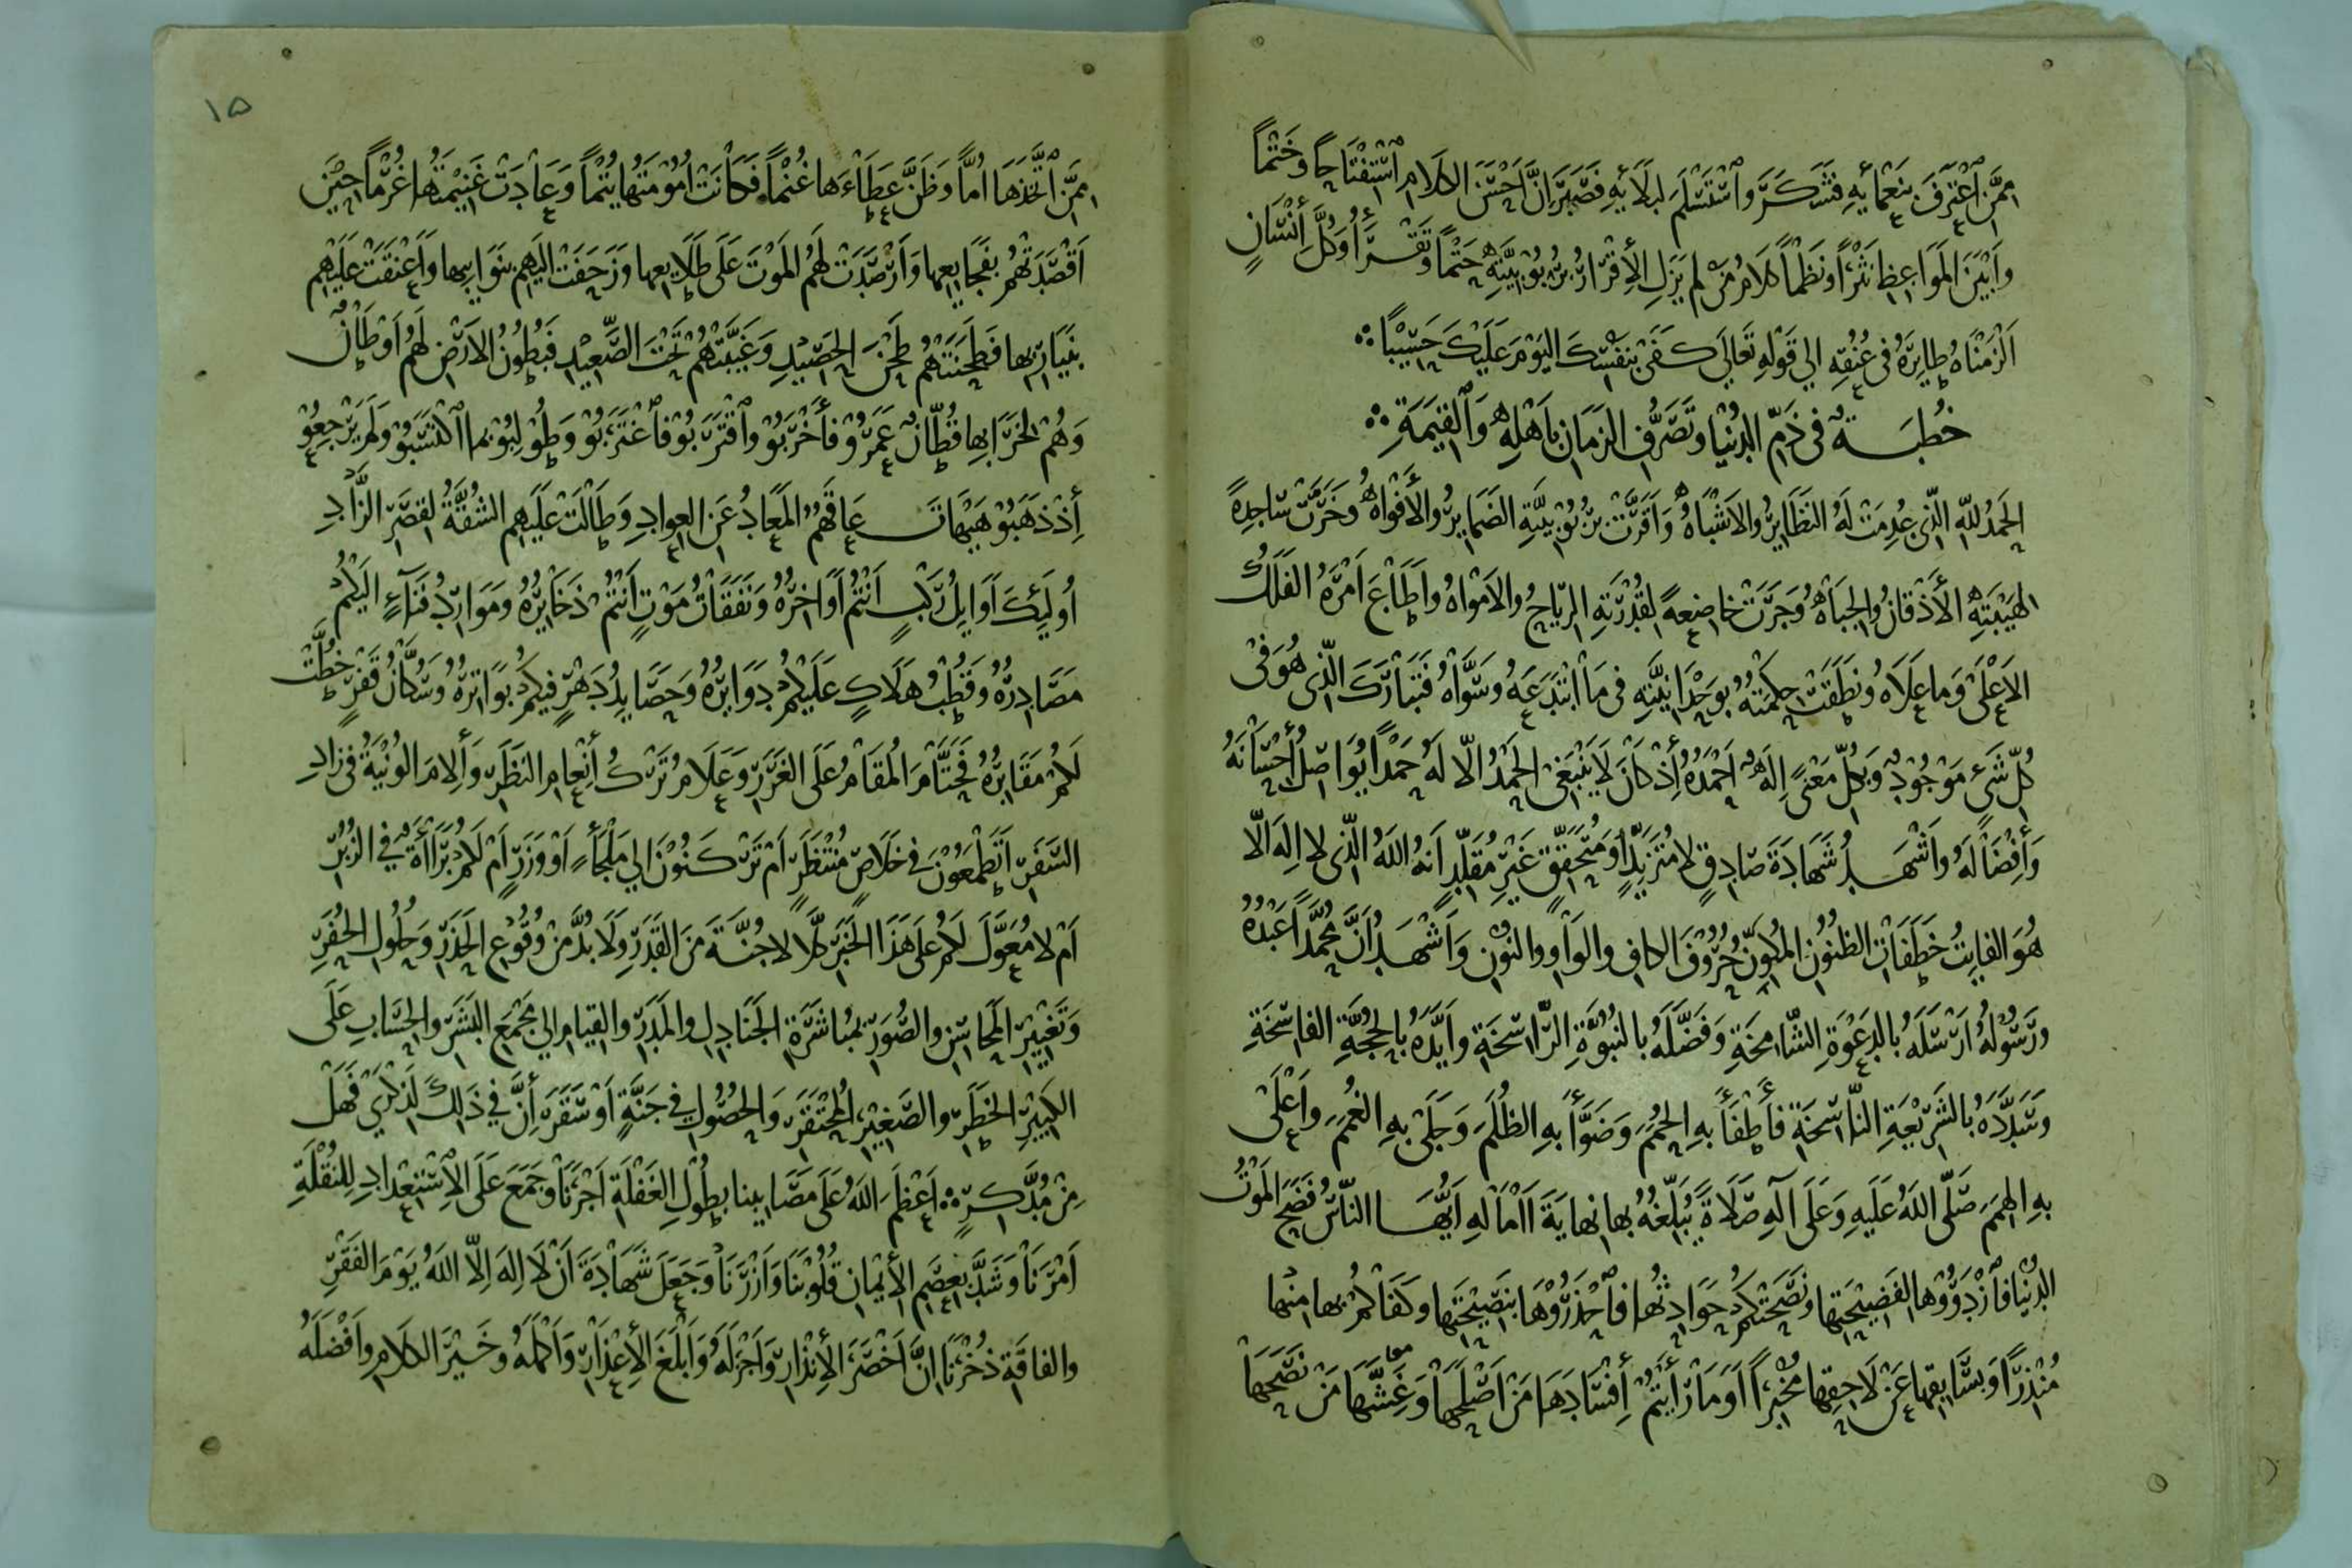 ممَّنِ اعْتَرَفَ بِنَعْمائِهِ فَشَكَرَ واسْتَسْلَمَ لبَلَائِهِ فَصَبَرَ اِنَّ اَحْسَنَ الكلامِ اسْتِفْتَاحًا وخَتْمًا
وأَبْيَنَ المَوَاعِظِ نَثْرًا ونَظْمًا كلَامُ مَنْ لم يَزَلِ الإِقْرَارُ برُبُوبِيَّتِهِ حَتْمًا وتَقْرأُ وكُلَّ إِنْسَانٍ
اَلْزَمْنَاهُ طايِرَهُ فى عُنُقِهِ الي قَوْلِهِ تَعَالَي كَفَى بِنَفْسِكَ اليَوْمَ عَلَيْكَ حَسِيْبًا
خُطْبَةٌ فى ذَمِّ الدُنْيَا وتَصَرُّفِ الزَمَانِ بِاَهْلِهِ وَالْقِيمَةِ
الحَمدُ للهِ الَّذِى عُدِمَتْ لَهُ النَظَايِرُ والاَشْبَاهُ وَاَقَرَّتْ برُبُوْبِيَّتِهِ الضَمَايِرُ والأَفْوَاهُ وخَرَّتْ سَاجِدِةً
لهَيْبَتِهِ الأَذْقانُ والجِبَاهُ وَجَرَتْ خاضِعةً لقُدْرَتِهِ الرِيَاحُ والاَمْوَاهُ واَطَاعَ اَمْرَهُ الفَلَكُ
الاَعْلَى وَما عَلَاهُ ونَطَقَتْ حِكْمَتُهُ بوَحْدَانِيَّتِهِ فى مَا ابْتَدَعَهُ وسَوَّاهُ فَتَبَارَكَ الَّذِى هُوَ فى
كُلِّ شَىءٍ مَوْجُوْدٌ وَبكُلِّ مَعْنىً إلَهٌ اَحْمَدُهُ إذْ كَانَ لَا يَنْبَغِى الحَمْدُ الَّا لَهُ حَمْدًا يُوَاصِلُ إِحْسَانَهُ
وَأِفْضَالَهُ وَاَشْهَدُ شَهَادَةَ صَادِقٍ لا مُتَزَيِّدٍ ومُتَحَقِّقٍ غَيْرِ مُقَلِّدٍ اَنهُ اللهُ الَّذِى لا اِلهَ الَّا
هُوَ الفايِتُ خَطَفَاتِ الظنُوْنِ المُكَوِّنُ حُرُوْفَ الكافِ والوَاوِ والنُوْنِ وَاَشْهَدُ اَنَّ مُحَمَّدًا عَبْدُهُ
ورَسُوْلُهُ اَرْسَلَهُ بالدَعْوَةِ الشَّامِخَةِ وَفَضَّلَهُ بالنُبُوَّةِ الرَّاسِخَةِ وايَّدَهُ بالحُجَّةِ الفاسِخَةِ
وسَدَّدَهُ بالشَرِيْعَةِ النَّاسِخَةِ فأَطْفَأَ بهِ الحُمَمَ وَضَوَّأَ بهِ الظُلَمَ وَجَلَى بهِ الغُمَمَ واَعْلَى
بهِ الهِمَمَ صَلَّى اللهُ عَلَيهِ وَعَلَى آلِهِ صَلَاةً يُبَلِّغُهُ بها نِهايَةَ اَمَالهِ اَيُّهَا النَّاسُ فَضَحَ المَوْتُ
الدُنْيَا فازْدَرُوْها لفَضِيْحَتِها ونَصَحَتْكُمْ حَوَادِثُها فاحْذَرُوْهَا بنَصِيْحَتِها وكَفَاكُمْ بها مِنْها
مُنْذِرًا وَبسَابِقِها عَنْ لَاحِقِها مُخْبرًا اَوَ مَا رَأَيْتُمْ إِفْسَادَهَا مَنْ اَصْلَحَهَا وَغِشَّها مَنْ نَصَحَهَا
١٥
ممَّنِ اتَّخَذَهَا اُمًّا وَظَنَّ عَطَاءَها غُنْمًا فَكانَتْ اُمُوْمَتُها يُتْمًا وَعادَتْ غَنِيْمَتُها غُرْمًا حِيْنَ
اَقْصَدَتْهُمْ بفَجَايِعِها وَأَرْصَدَتْ لهُمُ المَوْتَ عَلَى طَلَايِعِها وَزَحَفَتْ اليَهِم بنَوَايِبِها وَاَعْنَقَتْ عَلَيْهِم
بنَيَارِبها فَطَحَنَتْهُم طَحْنَ الحَصِيْدِ وَغَيَّبَتْهُمْ تَحْتَ الصَّعِيْدِ فَبُطُونُ الاَرْضِ لَهُمُ اَوْطَانٌ
وَهُمْ لخَرَابِها قُطَّانٌ عَمَرُوْ فأَخْرَبُوْ واقْتَرَبُوْ فاغْتَرَبُوْ وَطُوْلِبُوْ بما اكْتسَبُوْ وَلَمْ يَرْجِعُوْ
أِذْ ذهَبُوْ هَيْهَاتَ عَاقَهُمُ المَعَادُ عَنِ العوادِ وَطالَتْ عَلَيهِم الشُقَّةُ لقِصَرِ الزَّادِ
أُولَئِكَ اَوَايِلُ رَكْبٍ اَنْتُمْ اَوَاخِرُهُ وَنَفَقَاتُ مَوْتٍ اَنتُمْ ذَخَايِرُهُ ومَوَارِدُ فَنَاءٍ الَيْكُمْ
مَصَادِرُهُ وقُطْبُ هلَاكٍ عَلَيْكُمْ دوَايِرُهُ وَحَصَايِدُ دَهْرٍ فيكُمْ بَوَاتِرُهُ وَسُكَّانُ قَفْرٍ خُطَّتْ
لَكُمْ مَقَابِرُهُ فَحَتَّامَ المُقَامُ عَلَى الغَرَرِ وعَلَامَ تَرْكُ أِنْعامِ النَظَرِ وَأِلامَ الوُنْيَةُ فى زادِ
السَفَرِ اَتَطْمَعُوْنَ فى خَلَاصٍ مُنْتَظَرٍ اَمْ تَرْكَنُوْنَ الي مَلْجَأٍ اَوْ وَزَرٍ اَمْ لَكُمْ بَرَاءَةٌ في الزُبُرِ
اَمْ لا مُعَوَّلَ لَكُمْ علَى هَذَا الخَبَرِ كلَّا لا جُنَّةَ مَنَ القَدَرِ ولَا بُدَّ مَنْ وُقُوْعِ الحَذَرِ وَحُلُولِ الحُفَرِ
وَتَغْيِيْرِ المَحَاسِنِ والصُّوَرِ بمُباشَرَةِ الجَنَادِلِ والمَدَرِ والقِيامِ الي مَجْمَعِ البَشَرِ والحِسَابِ عَلَى
الكَبِيْرِ الخَطَرِ والصَّغِيْرِ المُحْتَقَرِ وَالحُصُوْلِ في جَنَّةٍ اَوْ سَقَرَ اِنَّ في ذَالِكَ لَذِكْرَي فَهَلْ
مِنْ مُدَّكِرٍ اَعْظَمَ اللهُ عَلَى مصَايِبنا بطُوْلِ الغَفْلَةِ اَجْرَنَا وجَمَعَ عَلَى الاِسْتِعْدادِ لِلنُقْلَةِ
اَمْرَنَا وَشَدَّ بعِصَمِ الأِيْمانِ قُلُوْبَنَا وَاَزْرَنَا وَجَعَلَ شَهَادَةَ اَنْ لَا اِلهَ اِلَّا اللهُ يَوْمَ الفَقْرِ
والفاقَةِ ذُخْرَنَا اِنَّ اَخْصَرَ الأِنْذارِ وَاَجْزَلَهُ وَاَبْلَغَ الأِعْذَارِ وَاَكْمَلَهُ وخَيْرَ الكلَامِ واَفْضَلَهُ